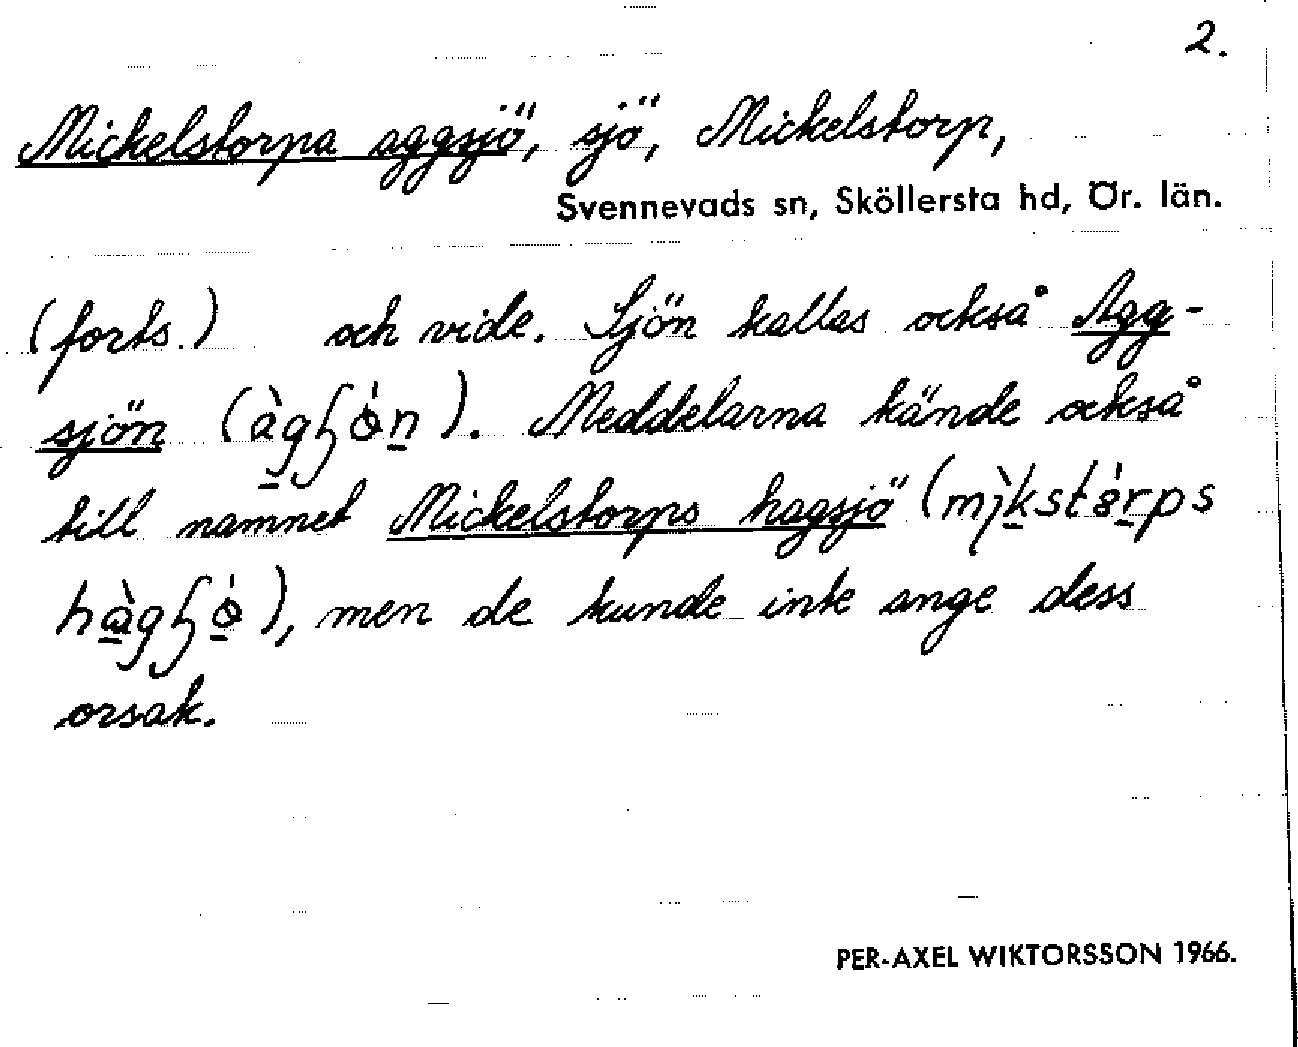 2.
Mickelstorpa aggsjö, sjö, Mickelstorp,
Svennevads sn, Sköllersta hd, Ör. län.
(forts.) och vide. Sjön kallas också Agg-
sjön (). Meddelarna kände också
till namnet Mickelstorps hagsjö (
), men de kunde inte ange dess
orsak.
PER-AXEL WIKTORSSON 1966.